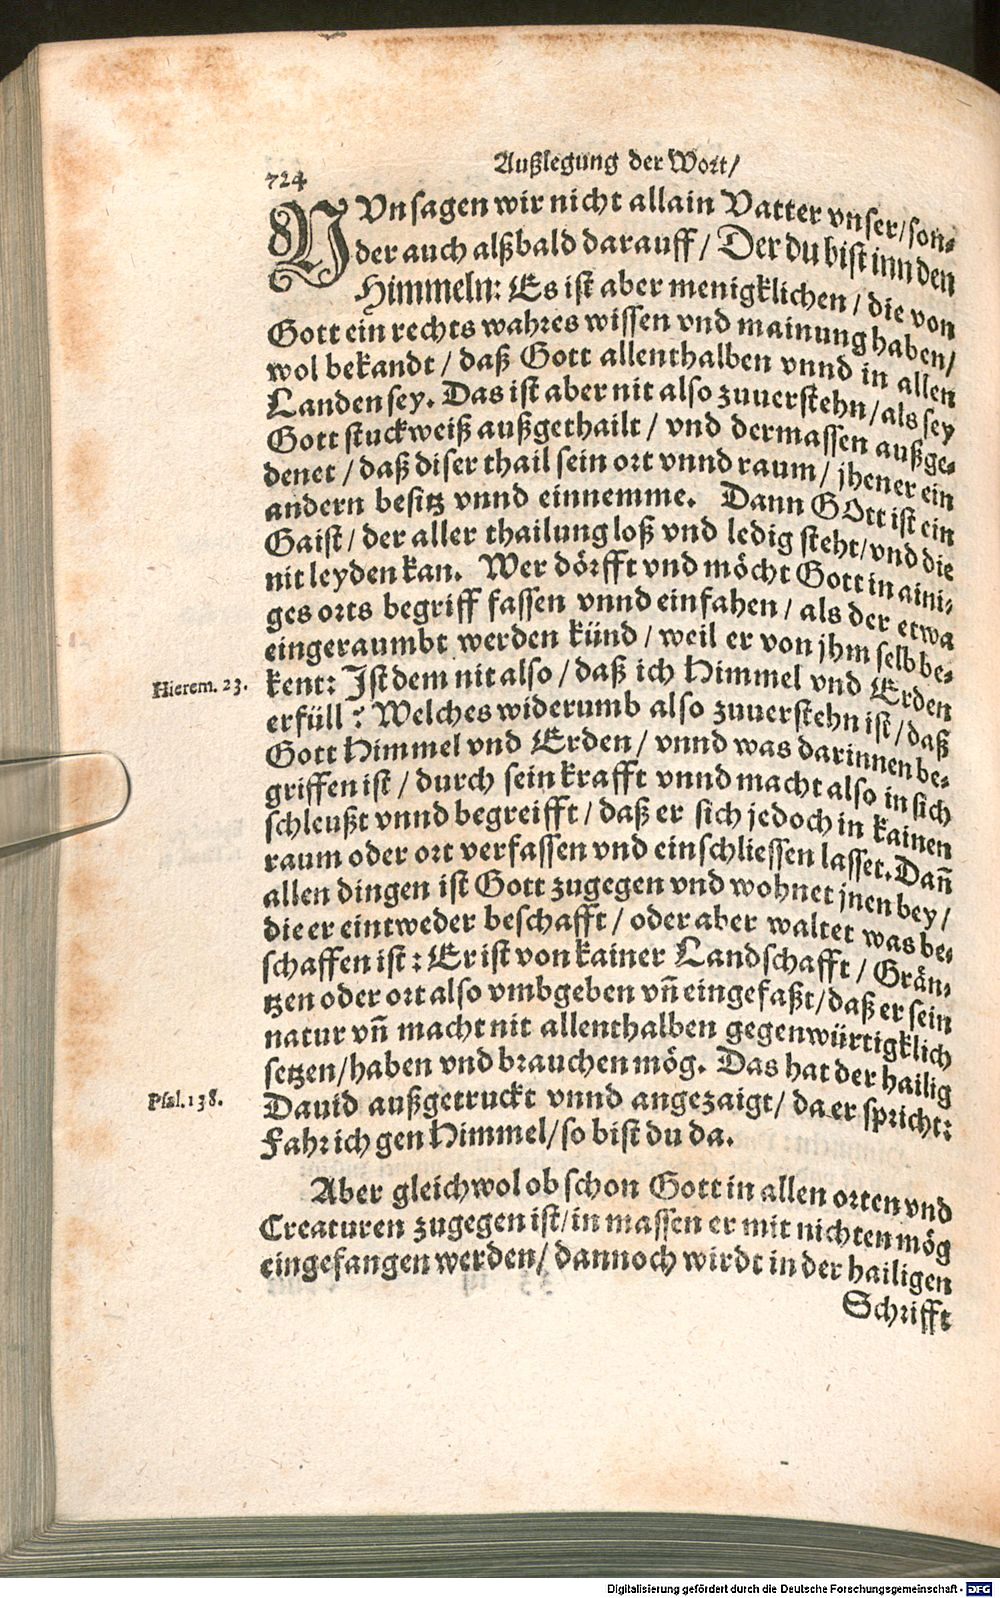 724
Außlegung der Wort/
NUn sagen wir nicht allain Vatter vnser/son-
der auch alßbald darauff/ Der du bist inn den
Himmeln: Es ist aber menigklichen/ die von
Gott ein rechts wahres wissen vnd mainung haben/
wol bekandt/ daß Gott allenthalben vnnd in allen
Landen sey. Das ist aber nit also zuuerstehn/als sey
Gott stuckweiß außgethailt/ vnd dermassen außge-
denet/ daß diser thail sein ort vnnd raum/ jhener ein
andern besitz vnnd einnemme. Dann GOtt ist ein
Gaist/ der aller thailung loß vnd ledig steht/vnd die
nit leyden kan. Wer dörfft vnd möcht Gott in aini-
ges orts begriff fassen vnnd einfahen/ als der etwa
eingeraumbt werden künd/ weil er von jhm selb be-
Hierem. 23. kent: Ist dem nit also/ daß ich Himmel vnd Erden
erfüll? Welches widerumb also zuuerstehn ist/daß
Gott Himmel vnd Erden/ vnnd was darinnen be-
griffen ist/ durch sein krafft vnnd macht also in sich
schleußt vnnd begreifft/ daß er sich jedoch in kainen
raum oder ort verfassen vnd einschliessen lasset. Dañ
allen dingen ist Gott zugegen vnd wohnet jnen bey/
die er eintweder beschafft/ oder aber waltet was be-
schaffen ist: Er ist von kainer Landschafft/ Grän-
tzen oder ort also vmbgeben vñ eingefaßt/daß er sein
natur vñ macht nit allenthalben gegenwürtigklich
setzen/haben vnd brauchen mög. Das hat der hailig
Psal.138. Dauid außgetruckt vnnd angezaigt/ da er spricht:
Fahr ich gen Himmel/so bist du da.
Aber gleichwol ob schon Gott in allen orten vnd
Creaturen zugegen ist/in massen er mit nichten mög
eingefangen werden/ dannoch wirdt in der hailigen
Schrifft
Digitalisierung gefördert durch die Deutsche Forschungsgemeinschaft - DFG